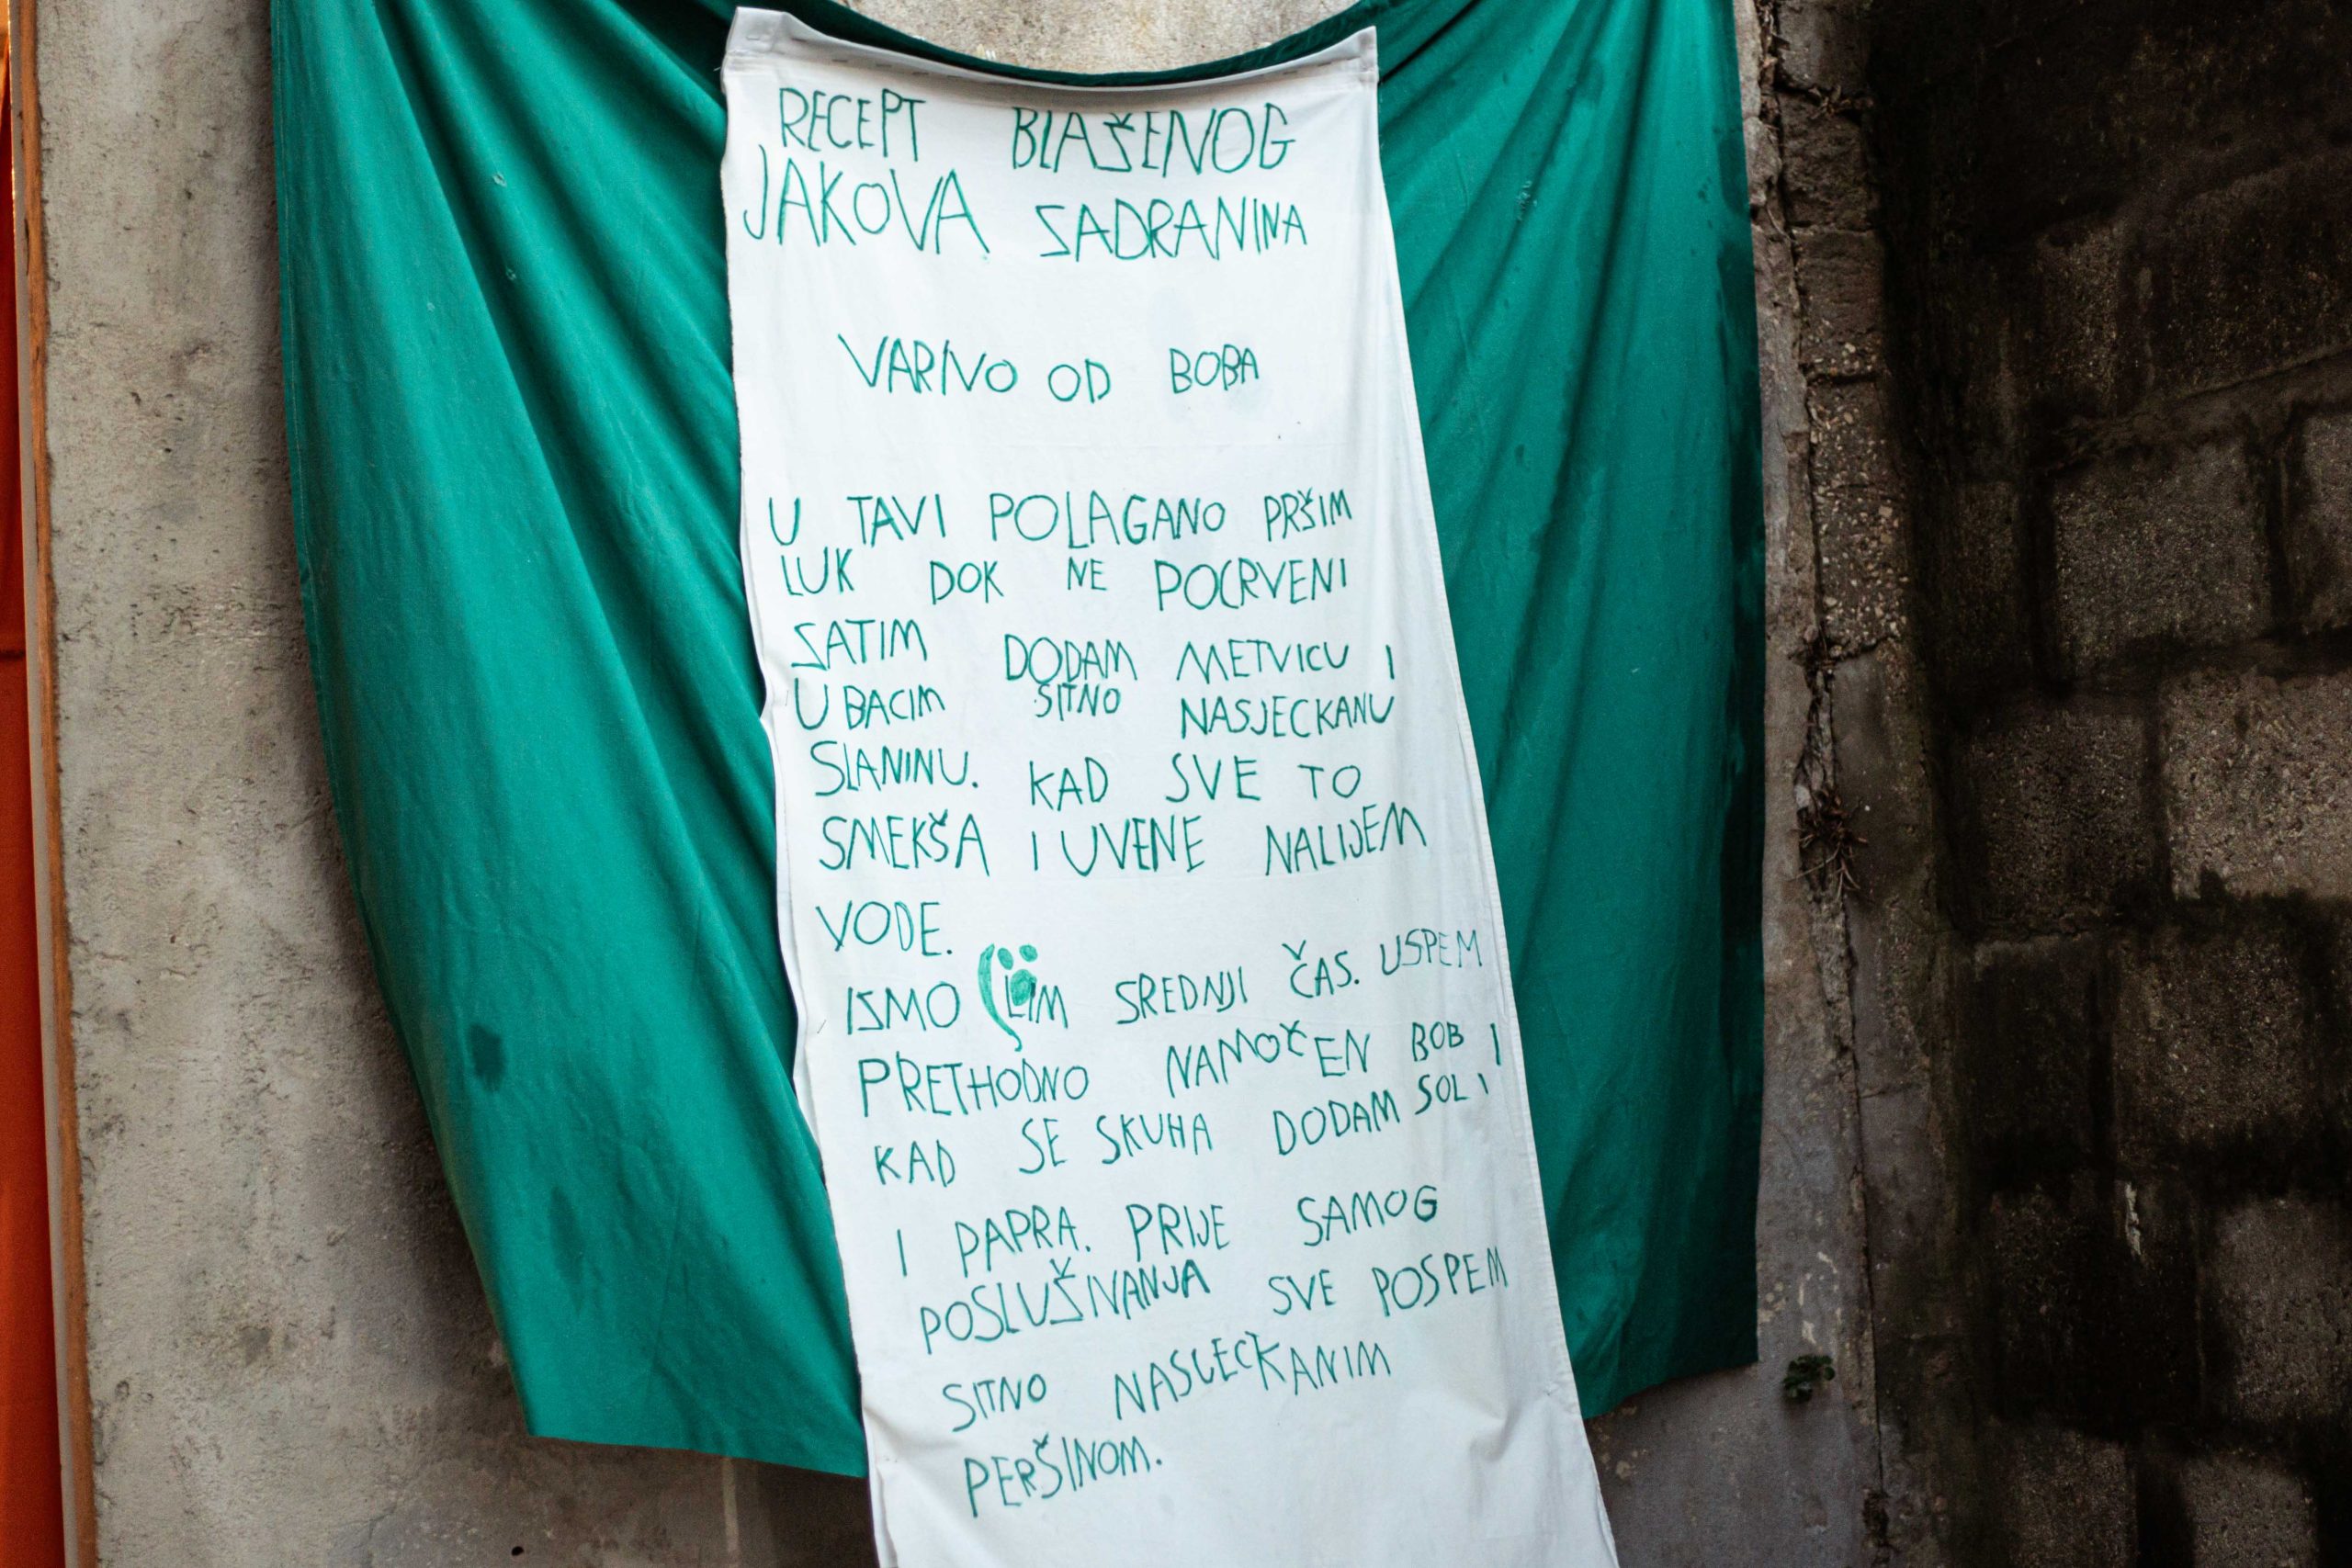 RECEPT BLAŽENOG
JAKOVA ZADRANINA
VARIVO OD BOBA
U TAVI POLAGANO PRŠIM
LUK DOK NE POCRVENI
ZATIM DODAM METVICU I
UBACIM SITNO NASJECKANU
SLANINU. KAD SVE TO
SMEKŠA I UVENE NALIJEM
VODE.
IZMO LIM SREDNJI ČAS. USPEM
PRETHODNO NAMOČEN BOB I
KAD SE SKUHA DODAM SOL I
I PAPRA. PRIJE SAMOG
POSLUŽIVANJA SVE POSPEM
SITNO NASJECKANIM
PERŠINOM.